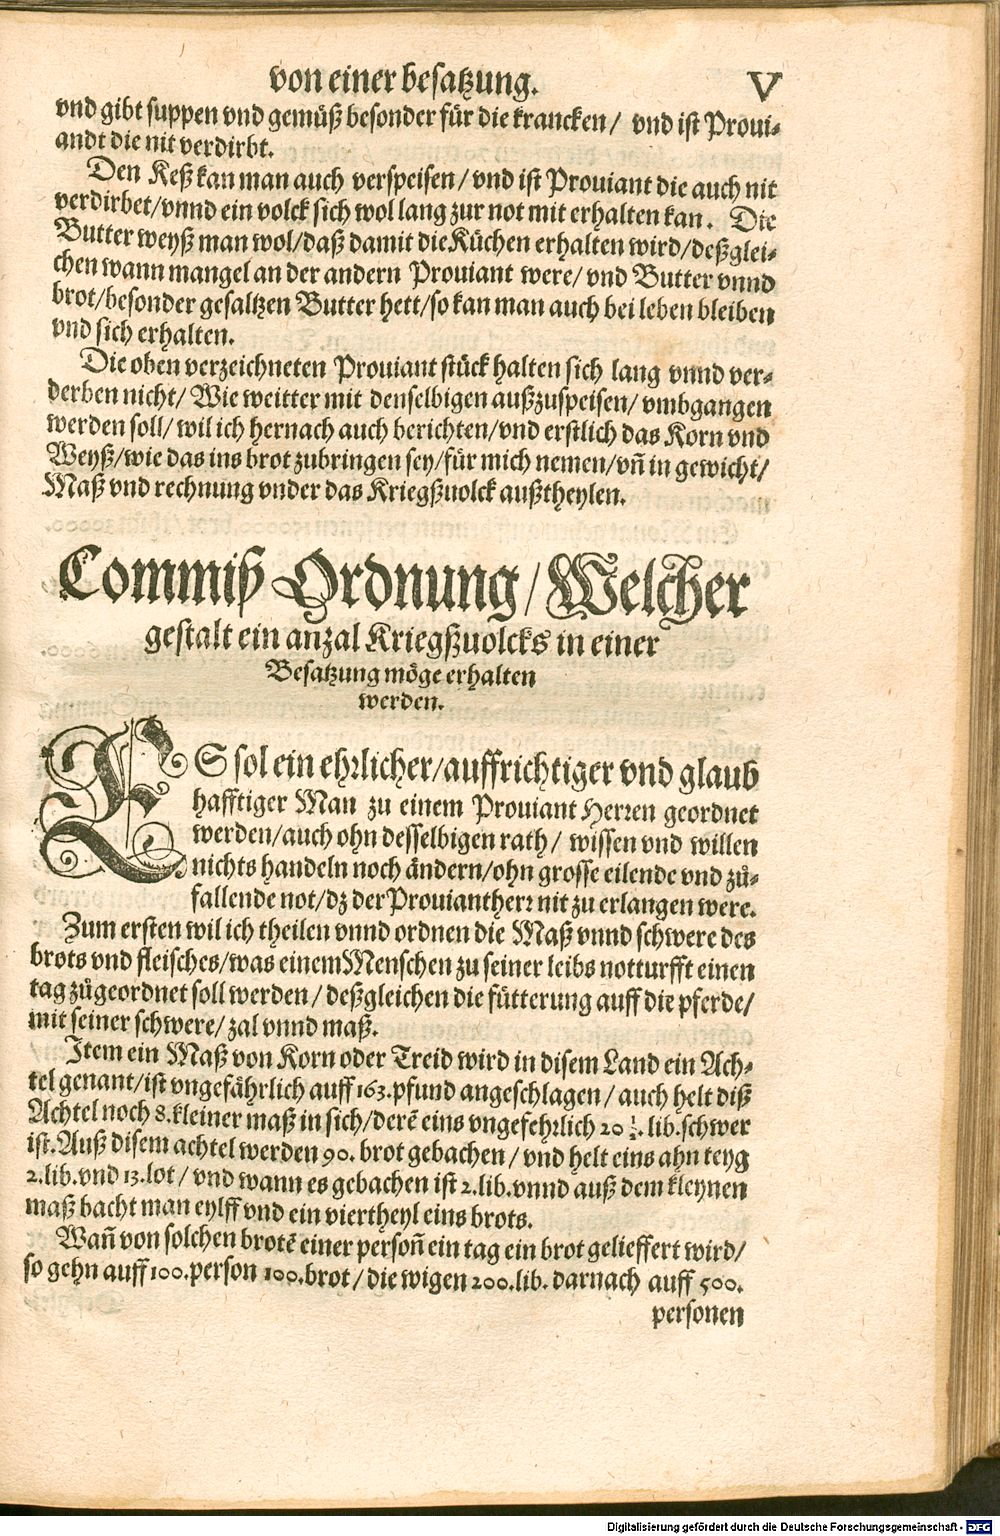 von einer besatzung. V
vnd gibt suppen vnd gemüß besonder für die krancken / vnd ist Proui-
andt die nit verdirbt.
Den Keß kan man auch verspeisen / vnd ist Prouiant die auch nit
verdirbet/vnnd ein volck sich wol lang zur not mit erhalten kan. Die
Butter weyß man wol/daß damit die Küchen erhalten wird/deßglei-
chen wann mangel an der andern Prouiant were/ vnd Butter vnnd
brot/besonder gesaltzen Butter hett/so kan man auch bei leben bleiben
vnd sich erhalten.
Die oben verzeichneten Prouiant stück halten sich lang vnnd ver-
derben nicht/ Wie weitter mit denselbigen außzuspeisen/ vmbgangen
werden soll/ wil ich hernach auch berichten/vnd erstlich das Korn vnd
Weyß/wie das ins brot zubringen sey/für mich nemen/vñ in gewicht/
Maß vnd rechnung vnder das Kriegßuolck außtheylen.
Commiß Ordnung/Welcher
gestalt ein anzal Kriegßuolcks in einer
Besatzung möge erhalten
werden.
ES sol ein ehrlicher/auffrichtiger vnd glaub
hafftiger Man zu einem Prouiant Herren geordnet
werden/auch ohn desselbigen rath / wissen vnd willen
nichts handeln noch ändern/ohn grosse eilende vnd zü-
fallende not/dz der Prouiantherr nit zu erlangen were.
Zum ersten wil ich theilen vnnd ordnen die Maß vnnd schwere des
brots vnd fleisches/was einem Menschen zu seiner leibs notturfft einen
tag zügeordnet soll werden / deßgleichen die fütterung auff die pferde/
mit seiner schwere/ zal vnnd maß.
Item ein Maß von Korn oder Treid wird in disem Land ein Ach-
tel genant/ist vngefährlich auff 163.pfund angeschlagen / auch helt diß
Achtel noch 8.kleiner maß in sich/derē eins vngefehrlich 20 ½. lib.schwer
ist. Auß disem achtel werden 90. brot gebachen / vnd helt eins ahn teyg
2.lib.vnd 13.lot / vnd wann es gebachen ist 2.lib.vnnd auß dem kleynen
maß bacht man eylff vnd ein viertheyl eins brots.
Wañ von solchen brotē einer persoñ ein tag ein brot gelieffert wird/
so gehn auff 100.person 100.brot / die wigen 200.lib. darnach auff 500.
personen
Digitalisierung gefördert durch die Deutsche Forschungsgemeinschaft - DFG